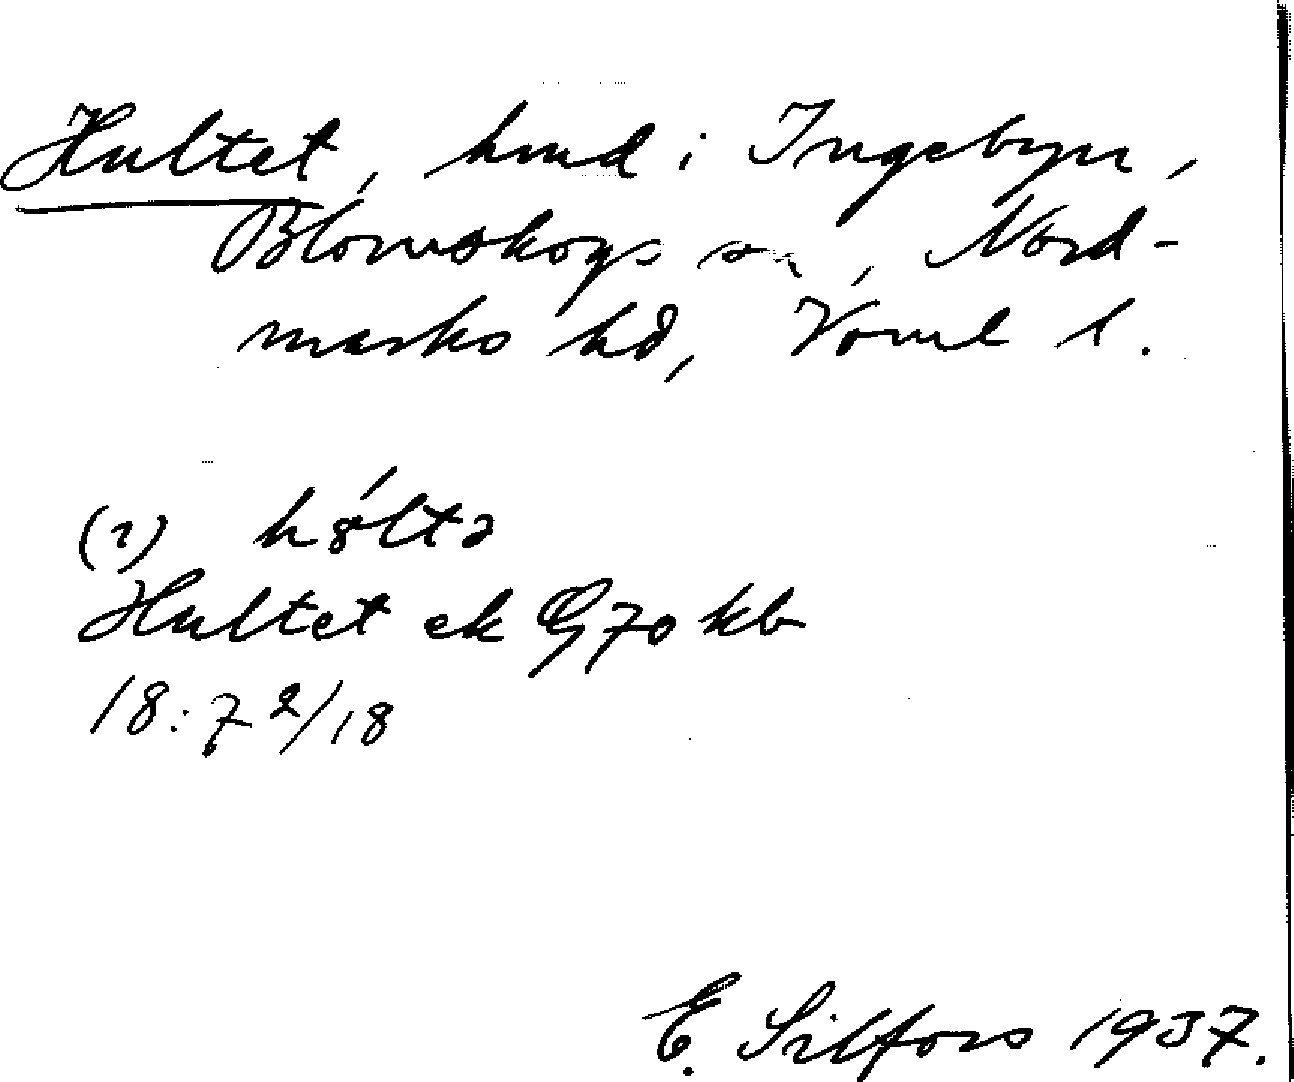 Hultet, hmd i Ingebyn,
Blomskogs sn, Nord-
marks hd, Värml l.
(i) hólta
Hultet ek G70 kb
18:7 2/18
E. Silfors 1937.